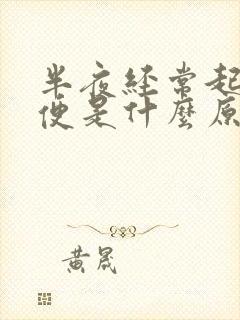 半夜經常起
便是什麼原
黃晟